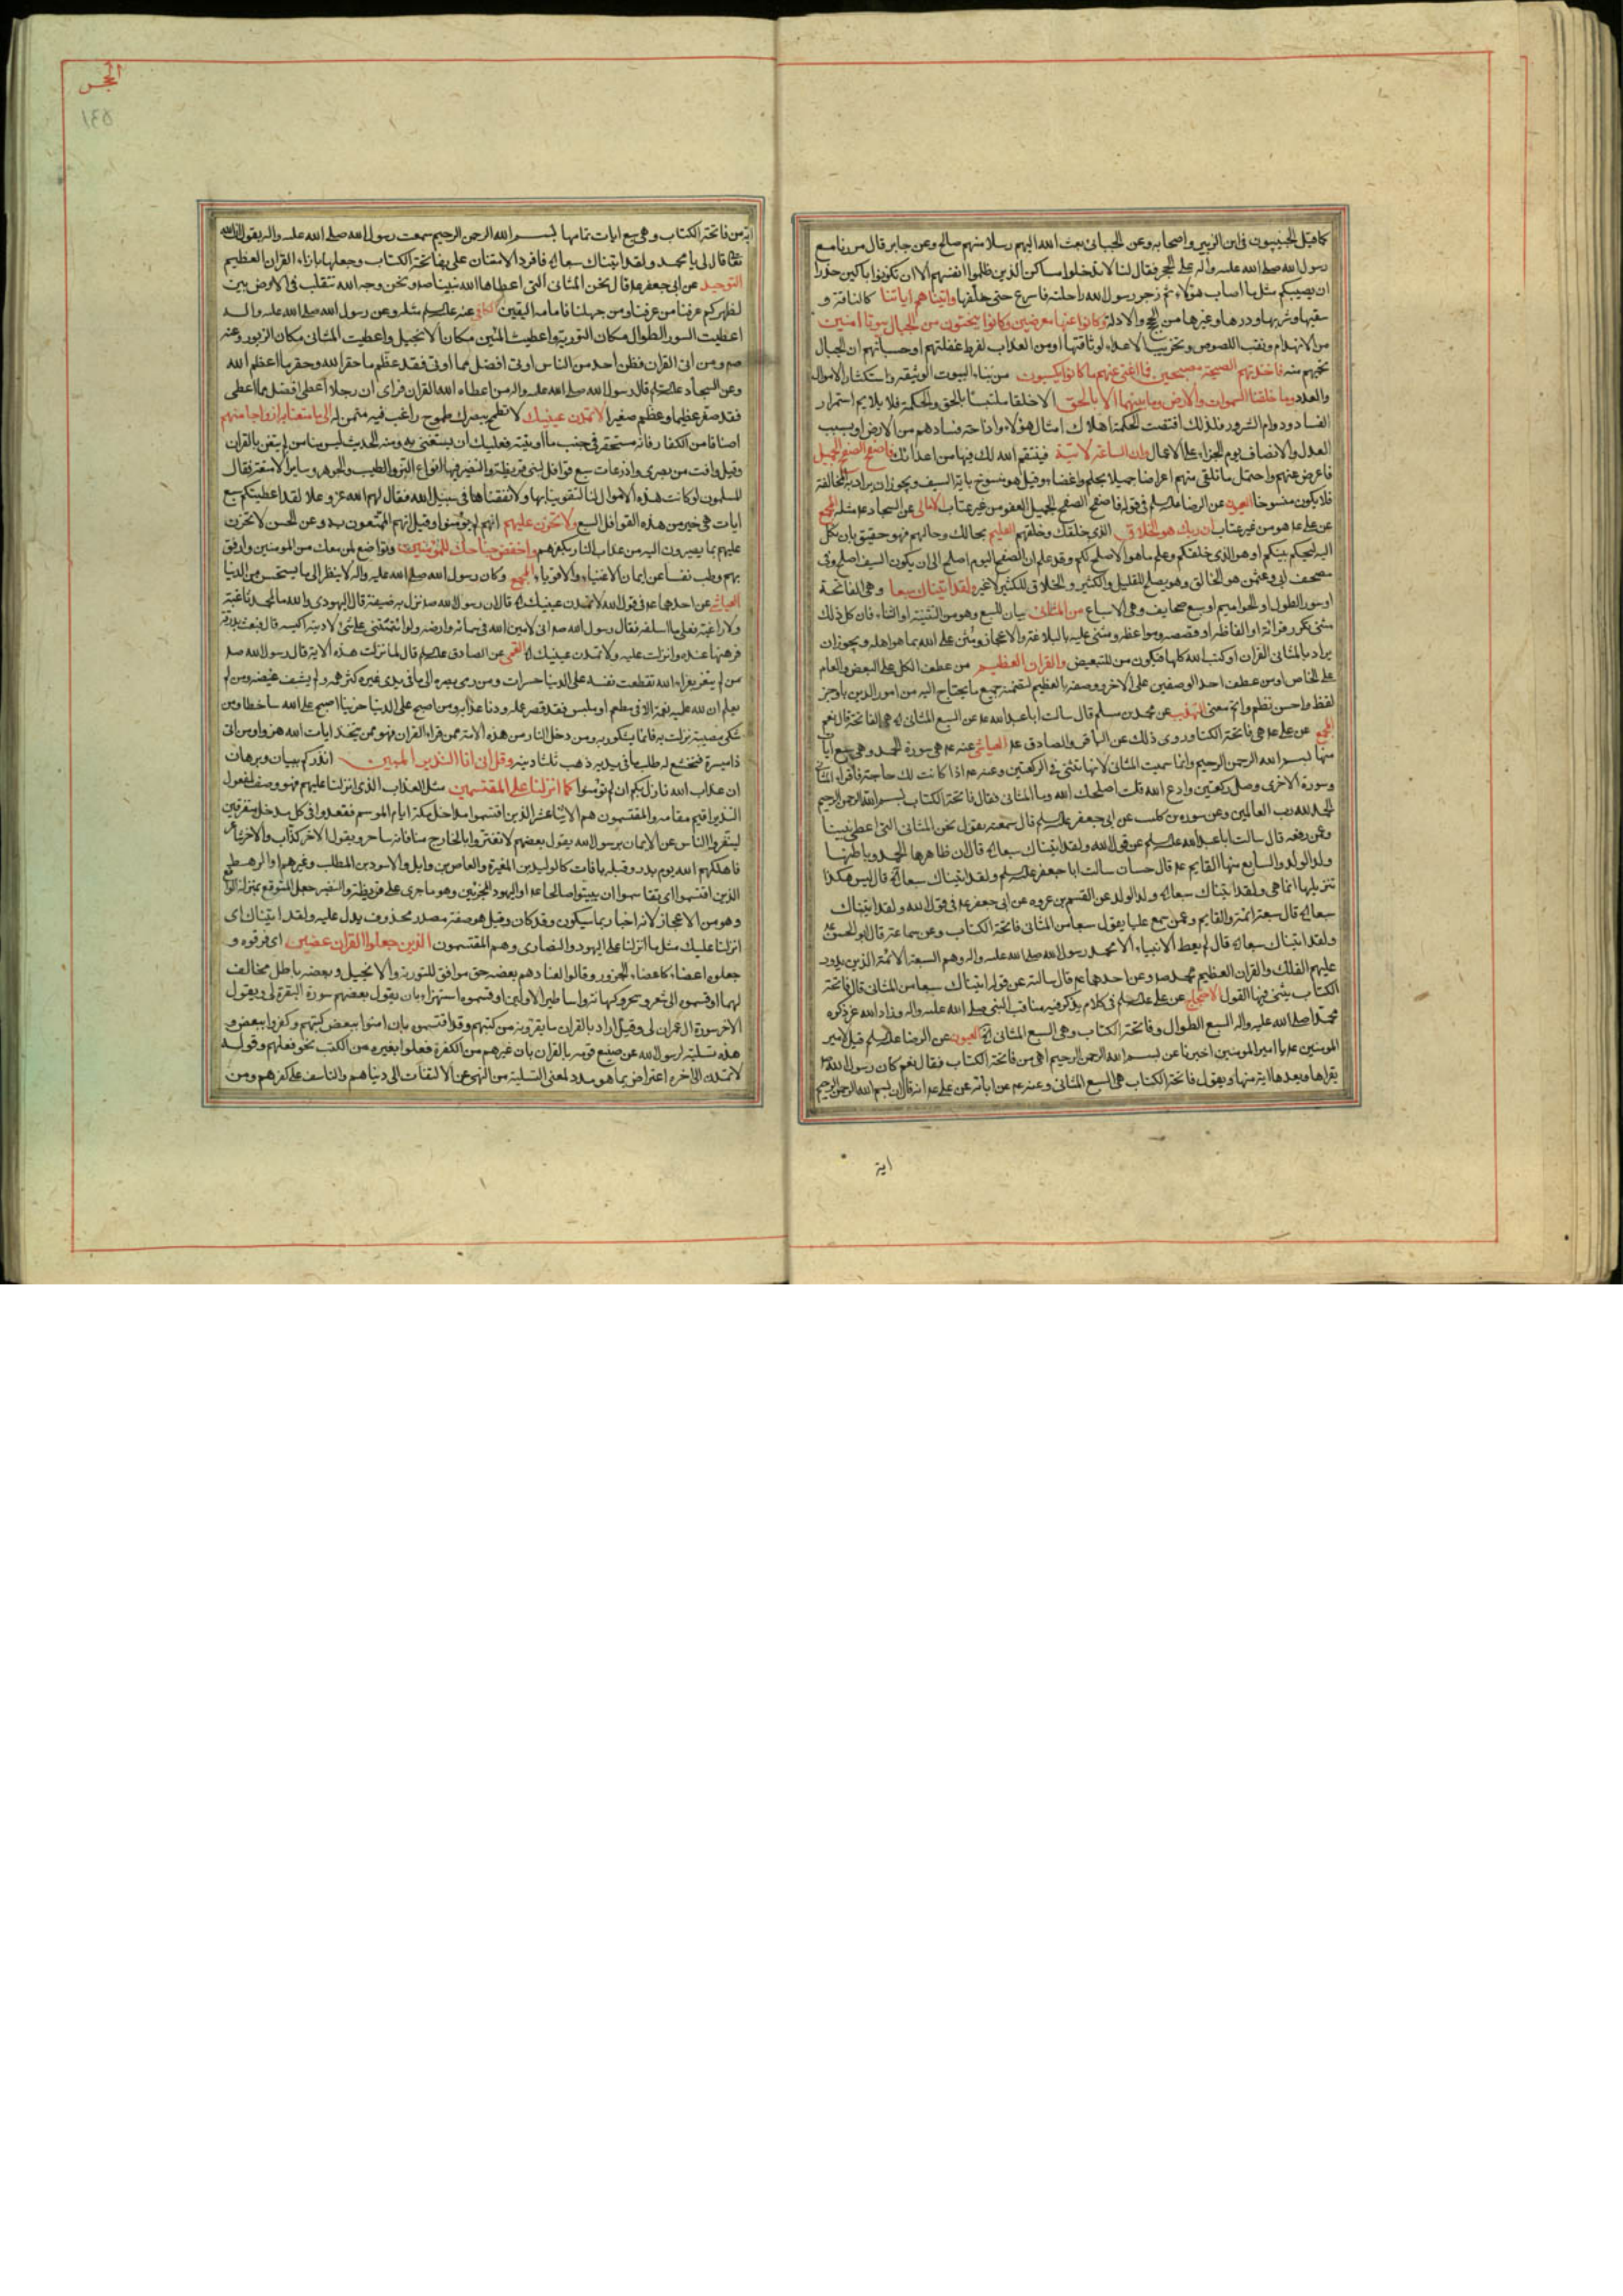 كما قيل الخبيبيون في ابن الزبير واصحابه وعن الجبائي بعث الله اليهم رسلا منهم صالح وعن جابر قال مررنا مع
رسول الله صلى الله عليه واله على الحجر فقال لنا لا تدخلوا مساكن الذين ظلموا انفسهم الا ان تكونوا باكين حذرا
ان يصيبكم مثل ما اصاب هؤلاء ثم زجر رسول الله راحلته فاسرع حتى خلفها واتيناهم اياتنا كالناقة و
سقيها وشربها ودرها وغيرها من الحجج والادلة وكانوا عنها معرضين وكانوا ينحتون من الجبال بيوتا امنين
من الانهدام ونقب اللصوص وتخريب الاعداء لوثاقتها او من العذاب لفرط غفلتهم او حسبانهم ان الجبال
تحميهم منه فاخذتهم الصيحة مصبحين فما اغنى عنهم ما كانوا يكسبون من بناء البيوت الوثيقة واستكثار الاموال
والعدد وما خلقنا السموات والارض وما بينهما الا بالحق الا خلقا ملتبسا بالحق والحكمة فلا يلايم استمرار
الفساد ودوام الشرور فلذلك اقتضت الحكمة اهلاك امثال هؤلاء وازاحة فسادهم من الارض او بسبب
العدل والانصاف يوم الجزاء على الاعمال وان الساعة لاتية فينتقم الله لك فيها من اعدائك فاصفح الصفح الجميل
فاعرض عنهم واحتمل ما تلقى منهم اعراضا جميلا بحلم واغضاء وقيل هو منسوخ باية السيف ويجوز ان يراد به المخالفة
فلا يكون منسوخا العيون عن الرضا عليه السلام في قوله فاصفح الصفح الجميل العفو من غير عتاب الامالي عن السجاد ع مثله المجمع
عن علي ع هو من غير عتاب ان ربك هو الخلاق الذي خلقك وخلقهم العليم بحالك وحالهم فهو حقيق بان تكل
اليه ليحكم بينكم او هو الذي خلقكم وعلم ما هو الاصلح لكم وقد علم ان الصفح اليوم اصلح الى ان يكون السيف اصلح وفي
مصحف ابي وعثمن هو الخالق وهو يصلح للقليل والكثير والخلاق للكثير لا غير ولقد اتيناك سبعا وهي الفاتحة
او سور الطول او الحواميم او سبع صحايف وهي الاسباع من المثاني بيان للسبع وهو من التثنية او الثناء فان كل ذلك
مثنى تكرر قرائته او الفاظه او قصصه ومواعظه ومثنى عليه بالبلاغة والاعجاز ومثن على الله بما هو اهله ويجوز ان
يراد بالمثاني القران او كتب الله كلها فيكون من للتبعيض والقران العظيم من عطف الكل على البعض والعام
على الخاص او من عطف احد الوصفين على الاخر ووصفه بالعظيم لتضمنه جميع ما يحتاج اليه من امور الدين باوجز
لفظ واحسن نظم واتم معنى التهذيب عن محمد بن مسلم قال سالت ابا عبد الله ع عن السبع المثاني اهي الفاتحة قال نعم
المجمع عن علي ع هي فاتحة الكتاب وروى ذلك عن الباقر والصادق ع العياشي عنه ع هي سورة الحمد وهي سبع ايات
منها بسم الله الرحمن الرحيم وانما سميت المثاني لانها تثنى في الركعتين وعنه ع اذا كانت لك حاجة فاقرا المثاني
وسورة الاخرى وصل ركعتين وادع الله قلت اصلحك الله وما المثاني فقال فاتحة الكتاب بسم الله الرحمن الرحيم
الحمد لله رب العالمين وعن سورة بن كليب عن ابي جعفر عليه السلام قال سمعته يقول نحن المثاني التي اعطي نبينا
وعن رفعه قال سالت ابا عبد الله عليه السلام عن قول الله ولقد اتيناك سبعا الخ قال ان ظاهرها الحمد وباطنها
ولد الولد والسابع منها القايم ع قال حسان سالت ابا جعفر عليه السلام ولقد اتيناك سبعا الخ قال ليس هكذا
تنزيلها انما هي ولقد اتيناك سبعا الخ ولد الولد عن القسم بن عروه عن ابي جعفر ع في قول الله ولقد اتيناك
سبعا الخ قال سبعة ائمة والقايم وعمن سمع عليا يقول سبعا من المثاني فاتحة الكتاب وعن سماعة قال ابو الحسن ع
ولقد اتيناك سبعا الخ قال لم يعط الانبياء الا محمد رسول الله صلى الله عليه واله وهم السبعة الائمة الذين يدور
عليهم الفلك والقران العظيم محمد ص وعن احدهما ع قال سالته عن قوله اتيناك سبعا من المثاني قال فاتحة
الكتاب يثنى فيها القول الاحتجاج عن علي عليه السلام في كلام يذكر فيه مناقب النبي صلى الله عليه واله وزاد الله عز ذكره
محمدا صلى الله عليه واله السبع الطوال وفاتحة الكتاب وهي السبع المثاني الخ العيون عن الرضا عليه السلام قيل لامير
المومنين ع يا امير المومنين اخبرنا عن بسم الله الرحمن الرحيم اهي من فاتحة الكتاب فقال نعم كان رسول الله ص
يقراها ويعدها اية منها ويقول فاتحة الكتاب هي السبع المثاني وعنه ع عن ابائه عن علي ع انه قال ان بسم الله الرحمن الرحيم
اية
الحجر
١٤٥
اية من فاتحة الكتاب وهي سبع ايات تمامها بسم الله الرحمن الرحيم سمعت رسول الله صلى الله عليه واله يقول ان الله
تعالى قال لي يا محمد ولقد اتيناك سبعا الخ فافرد الامتنان علي بفاتحة الكتاب وجعلها بازاء القران العظيم
التوحيد عن ابي جعفر ع قال نحن المثاني التي اعطاها الله نبينا ص ونحن وجه الله نتقلب في الارض بين
اظهركم عرفنا من عرفنا ومن جهلنا فامامه اليقين الكافي عنه عليه السلام مثله وعن رسول الله صلى الله عليه واله
اعطيت السور الطوال مكان التورية واعطيت المئين مكان الانجيل واعطيت المثاني مكان الزبور وعنه
ص ومن اتى القران فظن احد من الناس اوتي افضل مما اوتي فقد عظم ما حقر الله وحقر ما اعظم الله
وعن السجاد عليه السلام قال رسول الله صلى الله عليه واله من اعطاه الله القران فراى ان رجلا اعطي افضل مما اعطي
فقد صغر عظيما وعظم صغيرا لا تمدن عينيك لا تطمح ببصرك طموح راغب فيه متمن له الى ما متعنا به ازواجا منهم
اصنافا من الكفار فانه مستحقر في جنب ما اوتيته فعليك ان يستغني به ومنه الحديث ليس منا من لم يتغن بالقران
وقيل وافت من بصرى واذرعات سبع قوافل لبني قريظة والنضير فيها انواع البز والطيب والجوهر وساير الامتعة فقال
المسلمون لو كانت هذه الاموال لنا لتقوينا بها ولانفقناها في سبيل الله فقال لهم الله عز وعلا لقد اعطيتكم سبع
ايات هي خير من هذه القوافل السبع ولا تحزن عليهم انهم لم يؤمنوا وقيل انهم الممتعون به وعن الحسن لا تحزن
عليهم بما يصيرون اليه من عذاب النار بكفرهم واخفض جناحك للمؤمنين وتواضع لمن معك من المومنين وارفق
بهم وطب نفسا عن ايمان الاغنياء والاقوياء المجمع وكان رسول الله صلى الله عليه واله لا ينظر الى ما يستحسن من الدنيا
العياشي عن احدهما ع في قول الله لا تمدن عينيك الخ قال ان رسول الله ص نزل به ضيفة قال اليهودي والله ما لمحمد ثاغية
ولا راغية فعلى ما اسلفه فقال رسول الله ص اني لامين الله في سمائه وارضه ولو ائتمنتني على شئ لاديته اليه قال فبعث بدرقة
فرهنها عنده وانزلت عليه ولا تمدن عينيك الخ القمي عن الصادق عليه السلام قال لما نزلت هذه الاية قال رسول الله ص
من لم يتعز بعزاء الله تقطعت نفسه على الدنيا حسرات ومن رمى ببصره الى ما في يدي غيره كثر همه ولم يشف غيضه ومن لم
يعلم ان لله عليه نعمة الا في مطعم او ملبس فقد قصر عمله ودنا عذابه ومن اصبح على الدنيا حزينا اصبح على الله ساخطا ومن
شكى مصيبة نزلت به فانما يشكو ربه ومن دخل النار من هذه الامة ممن قرا القران فهو ممن يتخذ ايات الله هزوا ومن اتى
ذا ميسرة فتخشع له طلب ما في يديه ذهب ثلثا دينه وقل اني انا النذير المبين انذركم ببيان وبرهان
ان عذاب الله نازل بكم ان لم تؤمنوا كما انزلنا على المقتسمين مثل العذاب الذي انزلنا عليهم فهو وصف لمفعول
النذير اقيم مقامه والمقتسمون هم الاثناعشر الذين اقتسموا مداخل مكة ايام الموسم فقعدوا في كل مدخل متفرقين
لينفروا الناس عن الايمان برسول الله يقول بعضهم لا تغتروا بالخارج منا فانه ساحر ويقول الاخر كذاب والاخر شاعر
فاهلكهم الله يوم بدر وقبله بافات كالوليد بن المغيرة والعاص بن وايل والاسود بن المطلب وغيرهم او الرهط
الذين اقتسموا اي تقاسموا ان يبيتوا صالحا ع او اليهود المجزئين وهو ما جرى على قريظة والنضير جعل المتوقع بمنزلة الواقع
وهو من الاعجاز لانه اخبار بما سيكون وقد كان وقيل هو صفة مصدر محذوف يدل عليه ولقد اتيناك اي
انزلنا عليك مثل ما انزلنا على اليهود والنصارى وهم المقتسمون الذين جعلوا القران عضين اي فرقوه و
جعلوه اعضاء كاعضاء الجزور وقالوا لعنادهم بعضه حق موافق للتورية والانجيل وبعضه باطل مخالف
لهما او قسموه الى شعر وسحر وكهانة واساطير الاولين او قسموه استهزاء بان يقول بعضهم سورة البقرة لي ويقول
الاخر سورة ال عمران لي وقيل اراد بالقران ما يقرؤنه من كتبهم وقد اقتسموه بان امنوا ببعض كتبهم وكفروا ببعض و
هذه تسلية لرسول الله عن صنيع قومه بالقران بان غيرهم من الكفرة فعلوا بغيره من الكتب نحو فعلهم وقوله
لا تمدن الى اخره اعتراض بما هو مدد لمعنى التسلية من النهي عن الالتفات الى دنياهم والتاسف على كفرهم ومن